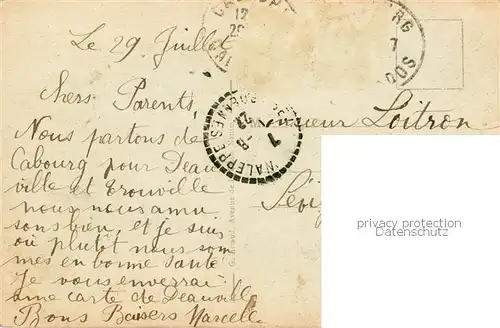 Le 29 Juillet
Chers Parents
Nous partons de
Cabourg pour Deau
ville et Trouville
nous nous amu
sons bien, et je suis
ou plutôt nous som
mes en bonne santé
Je vous enverrai
une carte de Deauville
Bons Baisers Marcelle
Monsieur Loitron
privacy protection
Datenschutz